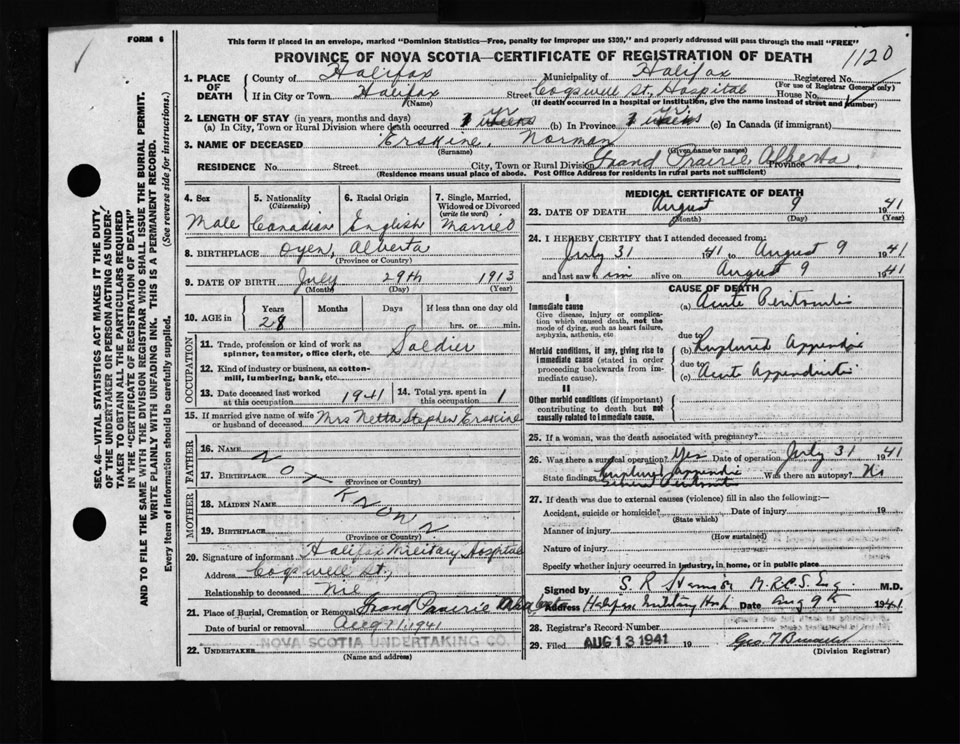 FORM 6
This form if placed in an envelope, marked "Dominion Statistics—Free, penalty for improper use $300," and properly addressed will pass through the mail "FREE"
PROVINCE OF NOVA SCOTIA—CERTIFICATE OF REGISTRATION OF DEATH
1120
SEC. 46—VITAL STATISTICS ACT MAKES IT THE DUTY
OF THE UNDERTAKER OR PERSON ACTING AS UNDER-
TAKER TO OBTAIN ALL THE PARTICULARS REQUIRED
IN THE "CERTIFICATE OF REGISTRATION OF DEATH"
AND TO FILE THE SAME WITH THE DIVISION REGISTRAR WHO SHALL ISSUE THE BURIAL PERMIT.
WRITE PLAINLY WITH UNFADING INK. THIS IS A PERMANENT RECORD.
Every item of information should be carefully supplied. (See reverse side for instructions.)
1. PLACE OF DEATH County of Halifax Municipality of Halifax Registered No.
(For use of Registrar General only)
If in City or Town Halifax Street Cogswell St. Hospital House No.
(Name) (If death occurred in a hospital or institution, give the name instead of street and number)
2. LENGTH OF STAY (in years, months and days)
(a) In City, Town or Rural Division where death occurred 1 yr weeks (b) In Province 1 yr weeks (c) In Canada (if immigrant)
3. NAME OF DECEASED Erskine, Norman
(Surname) (Given name or names)
RESIDENCE No. Street City, Town or Rural Division Grand Prairie Alberta Province
(Residence means usual place of abode. Post Office Address for residents in rural parts not sufficient)
4. Sex Male
5. Nationality (Citizenship) Canadian
6. Racial Origin English
7. Single, Married, Widowed or Divorced (write the word) Married
8. BIRTHPLACE Oyen, Alberta
(Province or Country)
9. DATE OF BIRTH July 29th 1913
(Month) (Day) (Year)
10. AGE in Years Months Days If less than one day
28 hrs. or min.
OCCUPATION
11. Trade, profession or kind of work as spinner, teamster, office clerk, etc. Soldier
12. Kind of industry or business, as cotton-mill, lumbering, bank, etc.
13. Date deceased last worked at this occupation 1941 14. Total yrs. spent in this occupation 1
15. If married give name of wife or husband of deceased Mrs Netta Stephen Erskine
FATHER
16. NAME
17. BIRTHPLACE Not
(Province or Country)
MOTHER
18. MAIDEN NAME Known
19. BIRTHPLACE
(Province or Country)
20. Signature of informant Halifax Military Hospital
Address Cogswell St,
Relationship to deceased Nil
21. Place of Burial, Cremation or Removal Grand Prairie Alberta
Date of burial or removal Aug 11/1941
22. UNDERTAKER NOVA SCOTIA UNDERTAKING CO.
(Name and address)
MEDICAL CERTIFICATE OF DEATH
23. DATE OF DEATH August 9 1941
(Month) (Day) (Year)
24. I HEREBY CERTIFY that I attended deceased from:
July 31 1941 to August 9 1941
and last saw him alive on August 9 1941
CAUSE OF DEATH
I
Immediate cause
Give disease, injury or complication which caused death, not the mode of dying, such as heart failure, asphyxia, asthenia, etc
(a) Acute Peritonitis
due to
Morbid conditions, if any, giving rise to immediate cause (stated in order proceeding backwards from immediate cause).
(b) Ruptured Appendix
due to
(c) Acute Appendicitis
II
Other morbid conditions (if important) contributing to death but not causally related to immediate cause.
25. If a woman, was the death associated with pregnancy?
26. Was there a surgical operation? Yes Date of operation July 31 1941
State findings Ruptured Appendix Peritonitis Was there an autopsy? No
27. If death was due to external causes (violence) fill in also the following:—
Accident, suicide or homicide? Date of injury 19
(State which)
Manner of injury
(How sustained)
Nature of injury
Specify whether injury occurred in industry, in home, or in public place
Signed by S R M.R.C.S. Eng. M.D.
Address Halifax Military Hosp Date Aug 9th 1941
28. Registrar's Record Number
29. Filed AUG 13 1941 19 Geo. T
(Division Registrar)